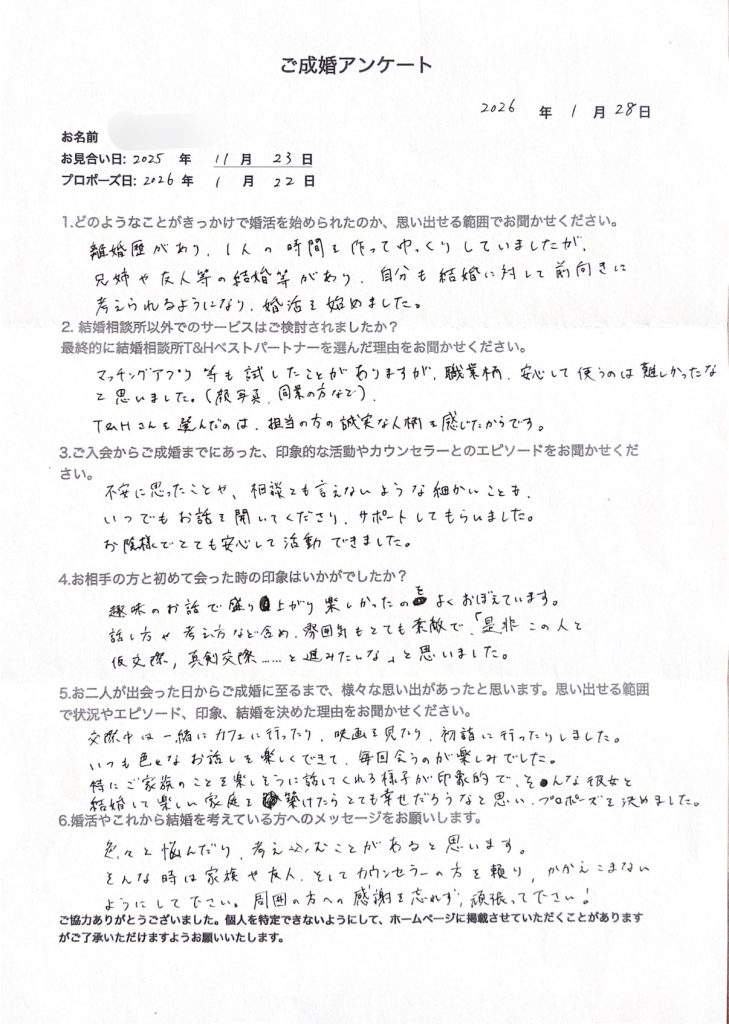 ご成婚アンケート
2026 年 1 月 28 日
お名前
お見合い日: 2025 年 11 月 23 日
プロポーズ日: 2026 年 1 月 22 日
1.どのようなことがきっかけで婚活を始められたのか、思い出せる範囲でお聞かせください。
離婚歴があり、1人の時間を作ってゆっくりしていましたが、
兄姉や友人等の結婚等があり、自分も結婚に対して前向きに
考えられるようになり、婚活を始めました。
2. 結婚相談所以外でのサービスはご検討されましたか？
最終的に結婚相談所T&Hベストパートナーを選んだ理由をお聞かせください。
マッチングアプリ等も試したことがありますが、職業柄、安心して使うのは難しかったな
と思いました。(顔写真、同業の方など)
T&Hさんを選んだのは、担当の方の誠実な人柄を感じたからです。
3.ご入会からご成婚までにあった、印象的な活動やカウンセラーとのエピソードをお聞かせくだ
さい。
不安に思ったことや、相談とも言えないような細かいことも、
いつでもお話を聞いてくださり、サポートしてもらいました。
お陰様でとても安心して活動できました。
4.お相手の方と初めて会った時の印象はいかがでしたか？
趣味のお話で盛り上がり楽しかったのをよくおぼえています。
話し方や考え方など含め、雰囲気もとても素敵で、「是非この人と
仮交際、真剣交際……と進みたいな」と思いました。
5.お二人が出会った日からご成婚に至るまで、様々な思い出があったと思います。思い出せる範囲
で状況やエピソード、印象、結婚を決めた理由をお聞かせください。
交際中は一緒にカフェに行ったり、映画を見たり、初詣に行ったりしました。
いつも色々なお話しを楽しくできて、毎回会うのが楽しみでした。
特にご家族のことを楽しそうに話してくれる様子が印象的で、そんな彼女と
結婚して楽しい家庭を築けたらとても幸せだろうなと思い、プロポーズを決めました。
6.婚活やこれから結婚を考えている方へのメッセージをお願いします。
色々と悩んだり、考え込むことがあると思います。
そんな時は家族や友人、そしてカウンセラーの方を頼り、かかえこまない
ようにして下さい。周囲の方への感謝を忘れず、頑張って下さい！
ご協力ありがとうございました。個人を特定できないようにして、ホームページに掲載させていただくことがあります
がご了承いただけますようお願いいたします。